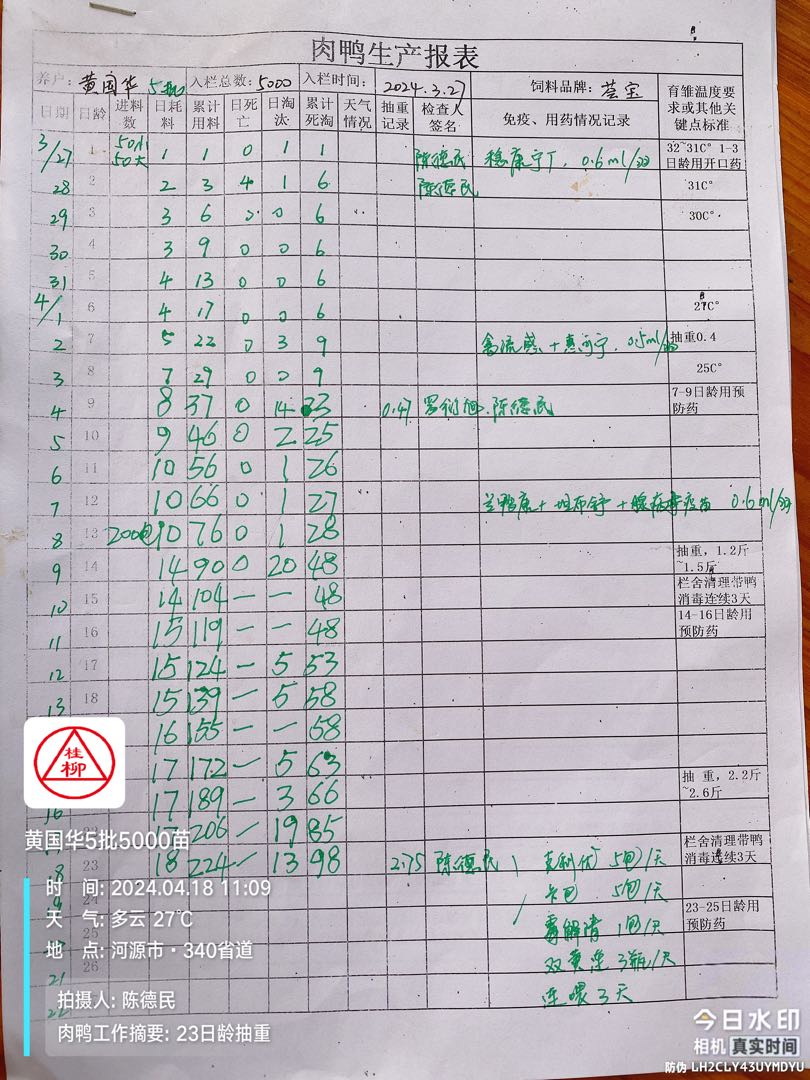 肉鸭生产报表
养户: 黄国华 5批 入栏总数: 5000 入栏时间: 2024.3.27 饲料品牌: 芸宝 育雏温度要求或其他关键点标准
日期 日龄 进料数 日耗料 累计用料 日死亡 日淘汰 累计死淘 天气情况 抽重记录 检查人签名 免疫、用药情况记录
3/27 1 50小 50大 1 1 0 1 1 陈德民 0.6ml/羽 32~31C° 1-3日龄用开口药
28 2 2 3 4 1 6 陈德民 31C°
29 3 3 6 0 0 6 30C°
30 4 3 9 0 0 6
31 5 4 13 0 0 6
4/1 6 4 17 0 0 6 27C°
2 7 5 22 0 3 9 0.5ml/羽 抽重0.4
3 8 7 29 0 0 9 25C°
4 9 8 37 0 14 23 0.47 陈德民 7-9日龄用预防药
5 10 9 46 0 2 25
6 11 10 56 0 1 26
7 12 10 66 0 1 27 0.6ml/羽
8 13 200包 10 76 0 1 28
9 14 14 90 0 20 48 抽重,1.2斤~1.5斤
10 15 14 104 — — 48 栏舍清理带鸭消毒连续3天
11 16 15 119 — — 48 14-16日龄用预防药
12 17 15 124 — 5 53
13 18 15 139 — 5 58
16 155 — — 58
17 172 — 5 63
16 17 189 — 3 66 抽 重,2.2斤~2.6斤
17 206 — 19 85 栏舍清理带鸭消毒连续3天
18 23 18 224 — 13 98 2.75 陈德民 5包/天
卡巴 5包/天
霉解清 1包/天 23-25日龄用预防药
26 双黄连 3瓶/天
21 连喂3天
22
桂柳
黄国华5批5000苗
时 间: 2024.04.18 11:09
天 气: 多云 27℃
地 点: 河源市·340省道
拍摄人: 陈德民
肉鸭工作摘要: 23日龄抽重
今日水印
相机 真实时间
防伪 LH2CLY43UYMDYU